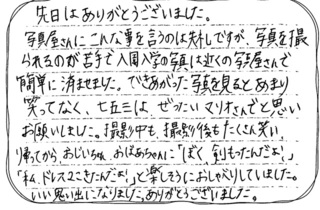 先日はありがとうございました。
写真屋さんにこんな事を言うのは失礼ですが、写真を撮
られるのが苦手で入園入学の写真は近くの写真屋さんで
簡単に済ませました。できあがった写真を見るとあまり
笑ってなく、七五三はぜったいマリオさんでと思い
お願いしました。撮影中も、撮影後もたくさん笑い、
帰ってから、おじいちゃん、おばあちゃんに「ぼく、剣もったんだよ!」
「私、ドレス2こきたんだよ!」と楽しそうにおしゃべりしていました。
いい思い出になりました。ありがとうございました。